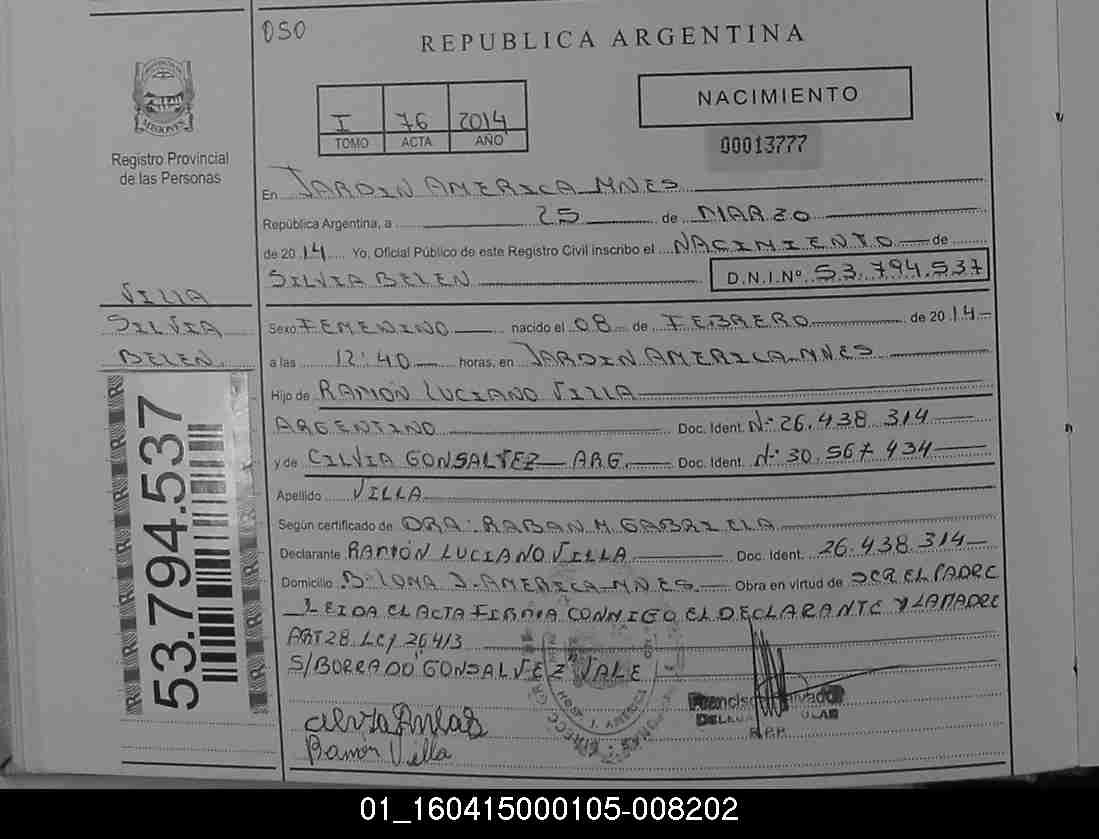 OSO
REPUBLICA ARGENTINA
MISIONES
Registro Provincial
de las Personas
I 76 2014
TOMO ACTA AÑO
NACIMIENTO
00013777
En JARDIN AMERICA MNES
República Argentina, a 25 de MARZO
de 2014 Yo, Oficial Público de este Registro Civil inscribo el NACIMIENTO de
SILVIA BELEN D.N.I.Nº 53.794.537
VILLA
SILVIA
BELEN
53.794.537
Sexo FEMENINO nacido el 08 de FEBRERO de 2014
a las 12:40 horas, en JARDIN AMERICA MNES
Hijo de RAMÓN LUCIANO VILLA
ARGENTINO Doc. Ident. Nº 26.438.314
y de CILVIA GONSALVEZ ARG. Doc. Ident. Nº 30.567.434
Apellido VILLA
Según certificado de DRA: RABAN M. GABRIELA
Declarante RAMÓN LUCIANO VILLA Doc. Ident. 26.438.314
Domicilio Bº LOMA J. AMERICA MNES Obra en virtud de SER EL PADRE
LEIDA EL ACTA FIRMA CONMIGO EL DECLARANTE Y LA MADRE
ART 28. LEY 26413
S/BORRADO GONSALVEZ "VALE
Ramon Villa
R.P.P.
01_160415000105-008202